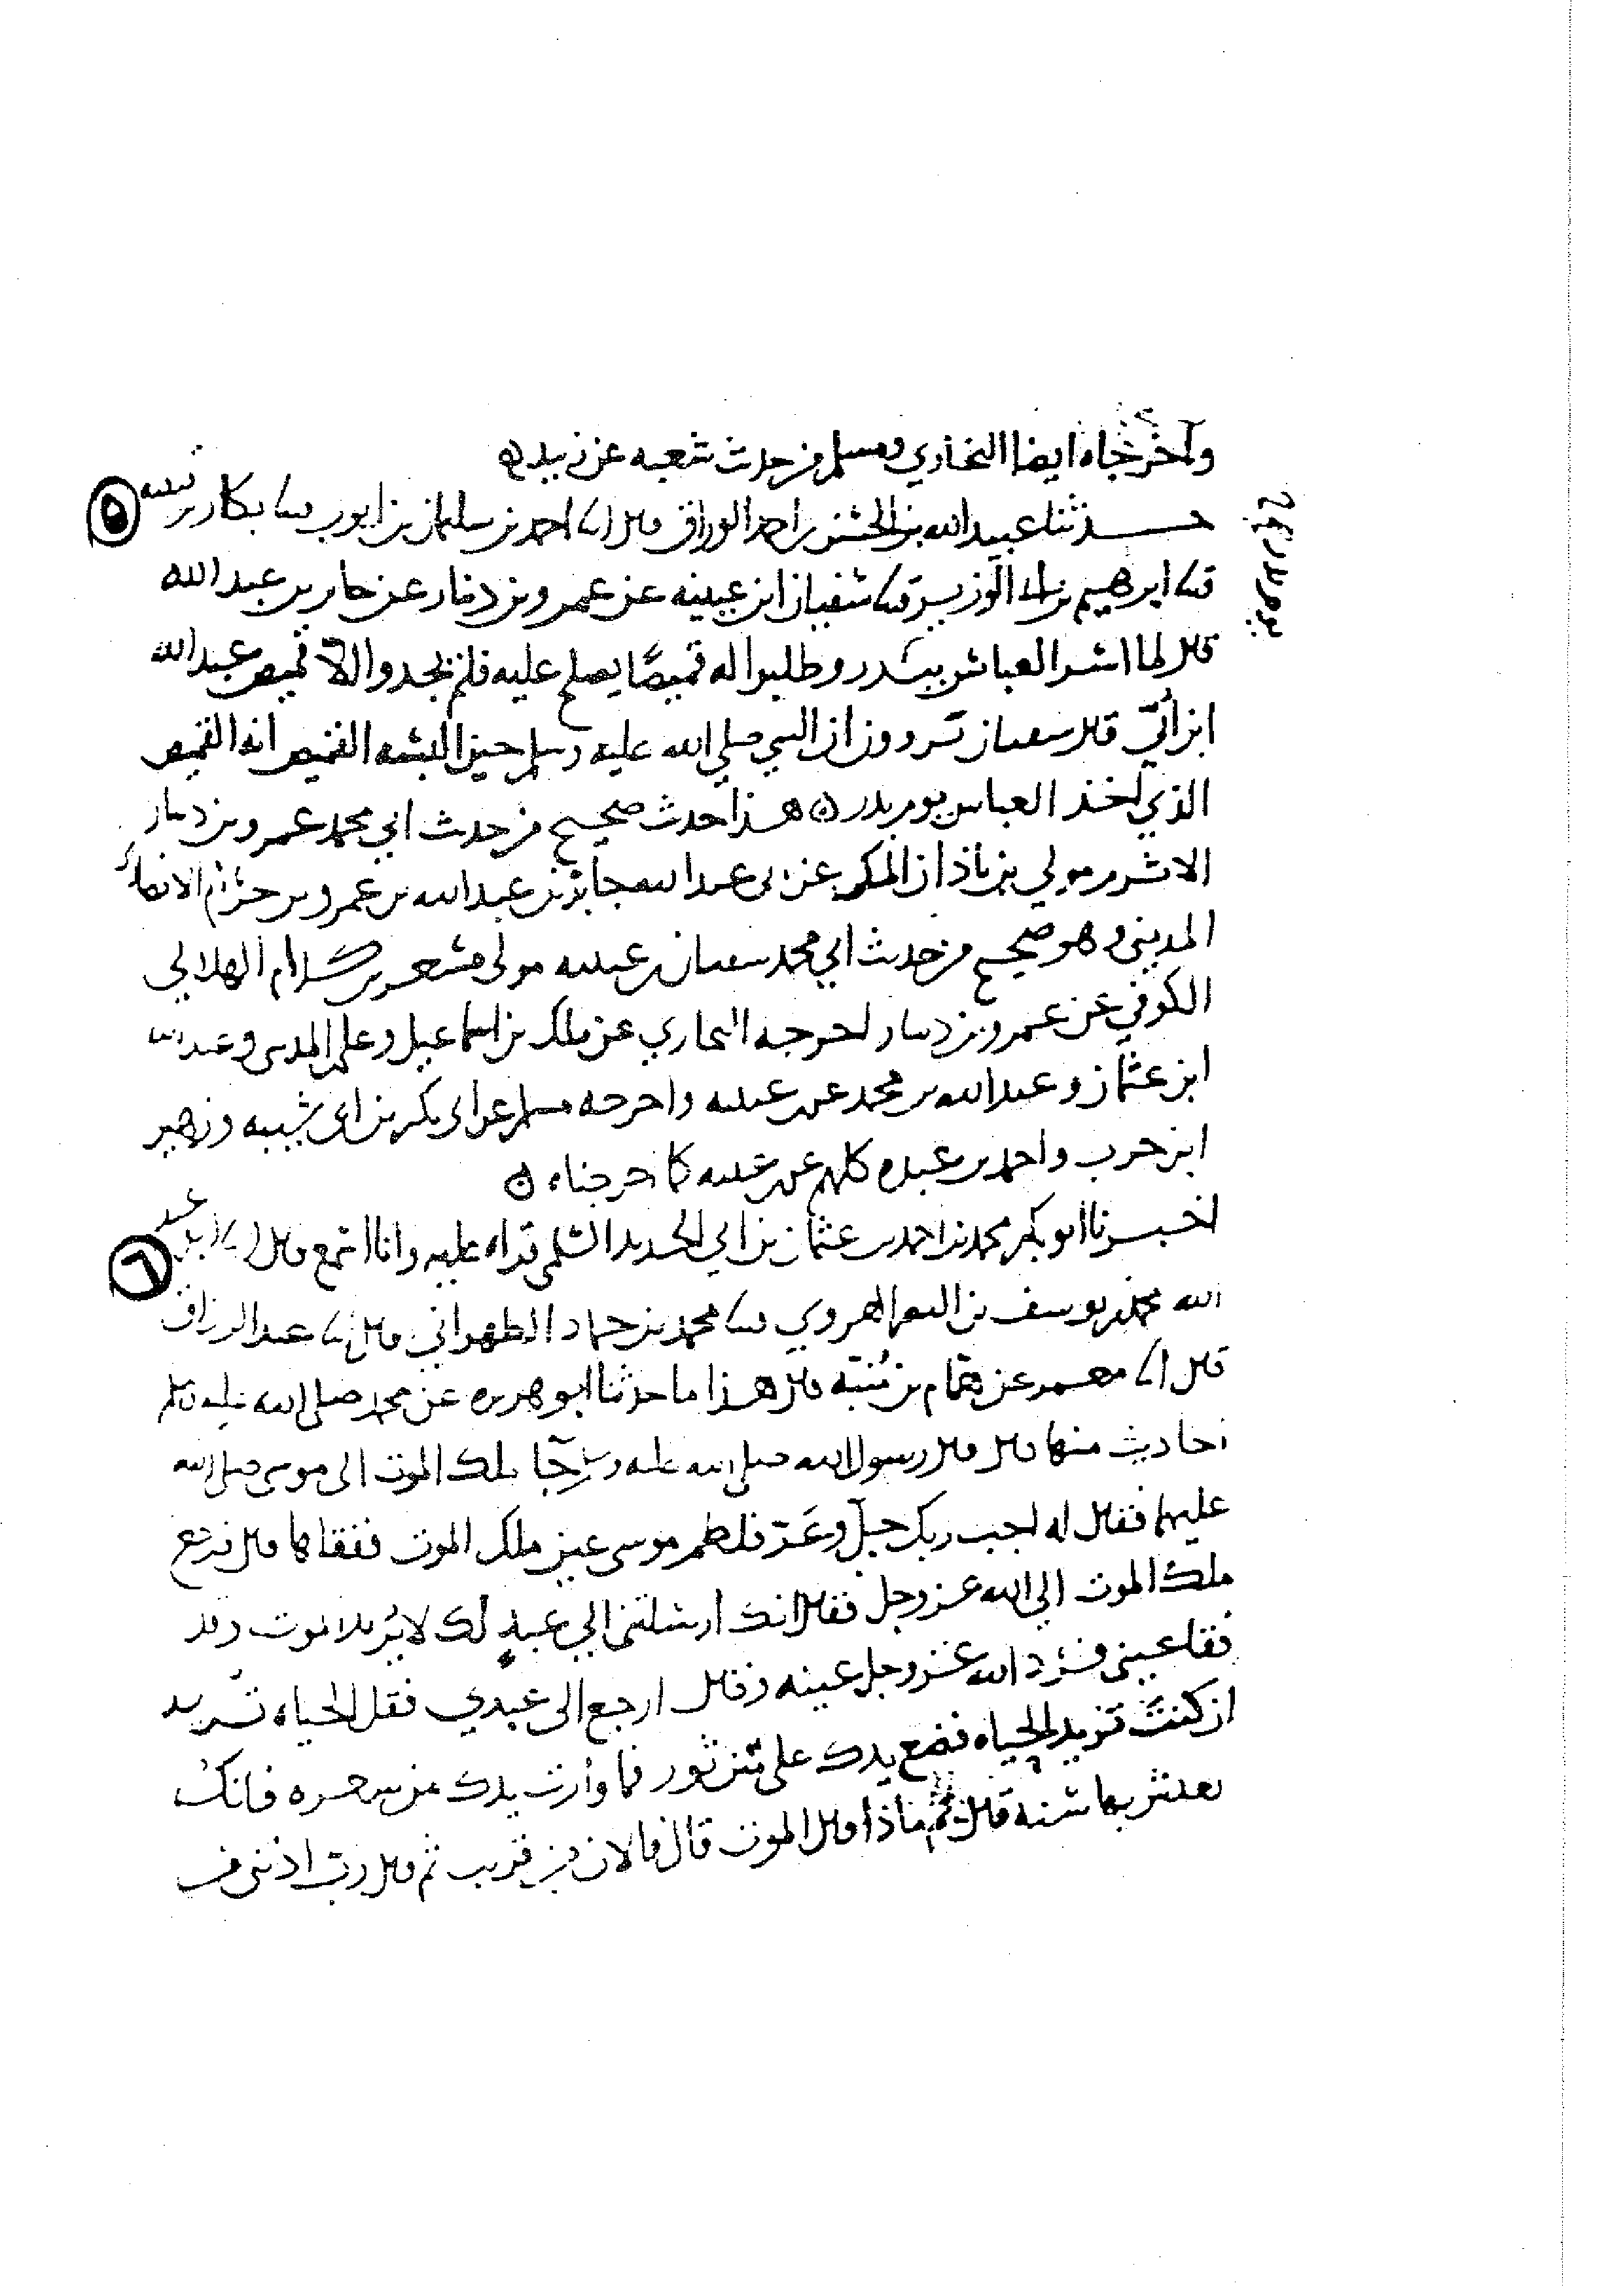 واخرجاه ايضا البخاري ومسلم من حديث شعبه عن زبيد ه
حدثنا عبيد الله بن الحسن بن احمد الوراق قال انا احمد بن سليمان بن ايوب ثنا بكار بن قتيبه
٥
ثنا ابرهيم بن ابي الوزير ثنا سفيان ابن عيينه عن عمرو بن دينار عن جابر بن عبد الله
قال لما اسر العباس ببدر وطلبوا له قميصا يصلح عليه فلم يجدوا الا قميص عبد الله
ابن أبي قال سفيان ترون ان النبي صلى الله عليه وسلم حين البسه القميص انه القميص
الذي اخذ العباس يوم بدر ه هذا حديث صحيح من حديث ابي محمد عمرو بن دينار
الاثرم مولي بن باذان المكي عن ابي عبد الله جابر بن عبد الله بن عمرو بن حرام الانصاري
المديني وهو صحيح من حديث ابي محمد سفيان بن عيينه مولى مسعر بن كدام الهلالي
الكوفي عن عمرو بن دينار اخرجه البخاري عن ملك بن اسماعيل وعلي المديني وعبد الله
ابن عثمان وعبد الله بن محمد عن بن عيينه واخرجه مسلم عن ابي بكر بن ابي شيبه وزهير
ابن حرب واحمد بن عبده كلهم عن بن عيينه كما اخرجناه ه
اخبرنا ابو بكر محمد بن احمد بن عثمان بن ابي الحديد السلمي قراه عليه وانا اسمع قال انا ابو عبد
٦
الله محمد بن يوسف بن الهروي ثنا محمد بن حماد الطهراني قال انا عبد الرزاق
قال انا معمر عن همام بن منبه قال هذا ما حدثنا ابو هريره عن محمد صلى الله عليه وسلم
احاديث منها قال قال رسول الله صلى الله عليه وسلم جا ملك الموت الى موسى صلى الله
عليهما فقال له اجب ربك جل وعز فلطم موسى عين ملك الموت ففقاها قال فرجع
ملك الموت الي الله عز وجل فقال انك ارسلتني الي عبد لك لا يريد الموت وقد
فقا عيني فرد الله عز وجل عينه وقال ارجع الى عبدي فقل الحياه تريد
ان كنت تريد الحياه فضع يدك على متن ثور فما وارت يدك من شعره فانك
تعيش بها سنه قال ثم ماذا قال الموت قال فالان من قريب ثم قال رب ادنني من